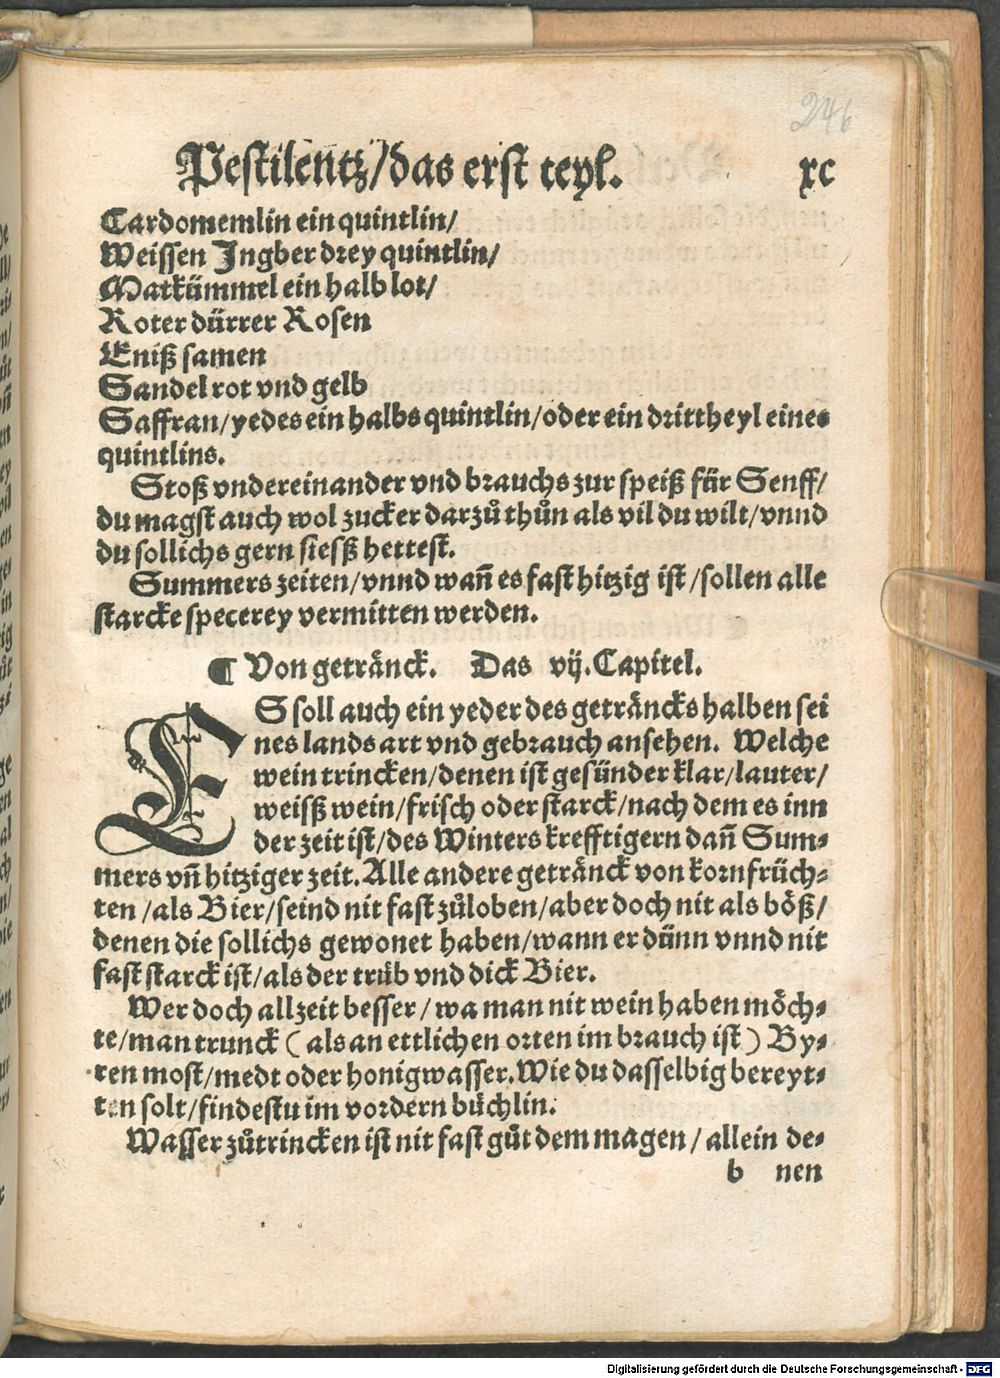 246
Pestilentz/das erst teyl. xc
Cardomemlin ein quintlin/
Weissen Jngber drey quintlin/
Matkümmel ein halb lot/
Roter dürrer Rosen
Eniß samen
Sandel rot vnd gelb
Saffran/yedes ein halbs quintlin/oder ein drittheyl eines
quintlins.
Stoß vndereinander vnd brauchs zur speiß für Senff/
du magst auch wol zucker darzů thůn als vil du wilt/vnnd
du sollichs gern siesß hettest.
Summers zeiten/vnnd wañ es fast hitzig ist/sollen alle
starcke specerey vermitten werden.
¶ Von getränck. Das vij. Capitel.
ES soll auch ein yeder des geträncks halben sei
nes lands art vnd gebrauch ansehen. Welche
wein trincken/denen ist gesünder klar/lauter/
weisß wein/frisch oder starck/nach dem es inn
der zeit ist/des Winters krefftigern dañ Sum⸗
mers vñ hitziger zeit. Alle andere getränck von kornfrüch⸗
ten/als Bier/seind nit fast zůloben/aber doch nit als böß/
denen die sollichs gewonet haben/wann er dünn vnnd nit
fast starck ist/als der trüb vnd dick Bier.
Wer doch allzeit besser/wa man nit wein haben möch⸗
te/man trunck (als an ettlichen orten im brauch ist) By⸗
ren most/medt oder honigwasser. Wie du dasselbig bereyt⸗
ten solt/findestu im vordern büchlin.
Wasser zůtrincken ist nit fast gůt dem magen/allein de⸗
b nen
Digitalisierung gefördert durch die Deutsche Forschungsgemeinschaft - DFG